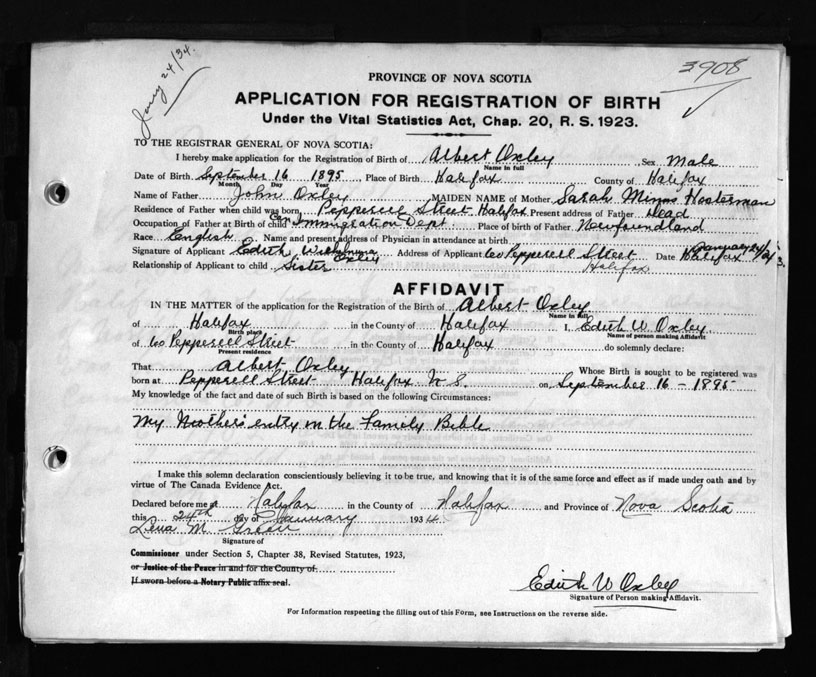 Jany 24/34.
3908
PROVINCE OF NOVA SCOTIA
APPLICATION FOR REGISTRATION OF BIRTH
Under the Vital Statistics Act, Chap. 20, R. S. 1923.
TO THE REGISTRAR GENERAL OF NOVA SCOTIA:
I hereby make application for the Registration of Birth of Albert Oxley Sex Male
Name in full
Date of Birth September 16 1895 Place of Birth Halifax County of Halifax
Month Day Year
Name of Father John Oxley MAIDEN NAME of Mother Sarah Minns Hosterman
Residence of Father when child was born Pepperell Street Halifax Present address of Father Dead
Occupation of Father at Birth of child Can Immigration Dept. Place of birth of Father Newfoundland
Race English Name and present address of Physician in attendance at birth
Signature of Applicant Edith Oxley Address of Applicant 60 Pepperell Street Halifax Date Halifax January 24/34
Relationship of Applicant to child Sister
AFFIDAVIT
IN THE MATTER of the application for the Registration of the Birth of Albert Oxley
Name in full
of Halifax in the County of Halifax I, Edith W Oxley
Birth place Name of person making Affidavit
of 60 Pepperell Street in the County of Halifax do solemnly declare:
Present residence
That Albert Oxley Whose Birth is sought to be registered was
born at Pepperell Street Halifax N S. on September 16 - 1895
My knowledge of the fact and date of such Birth is based on the following Circumstances:
My Mother's entry in the Family Bible
I make this solemn declaration conscientiously believing it to be true, and knowing that it is of the same force and effect as if made under oath and by
virtue of The Canada Evidence Act.
Declared before me at Halifax in the County of Halifax and Province of Nova Scotia
this 24th day of January 1934
Lena M. Green
Signature of
Commissioner under Section 5, Chapter 38, Revised Statutes, 1923,
or Justice of the Peace in and for the County of
If sworn before a Notary Public affix seal.
Edith W Oxley
Signature of Person making Affidavit.
For Information respecting the filling out of this Form, see Instructions on the reverse side.